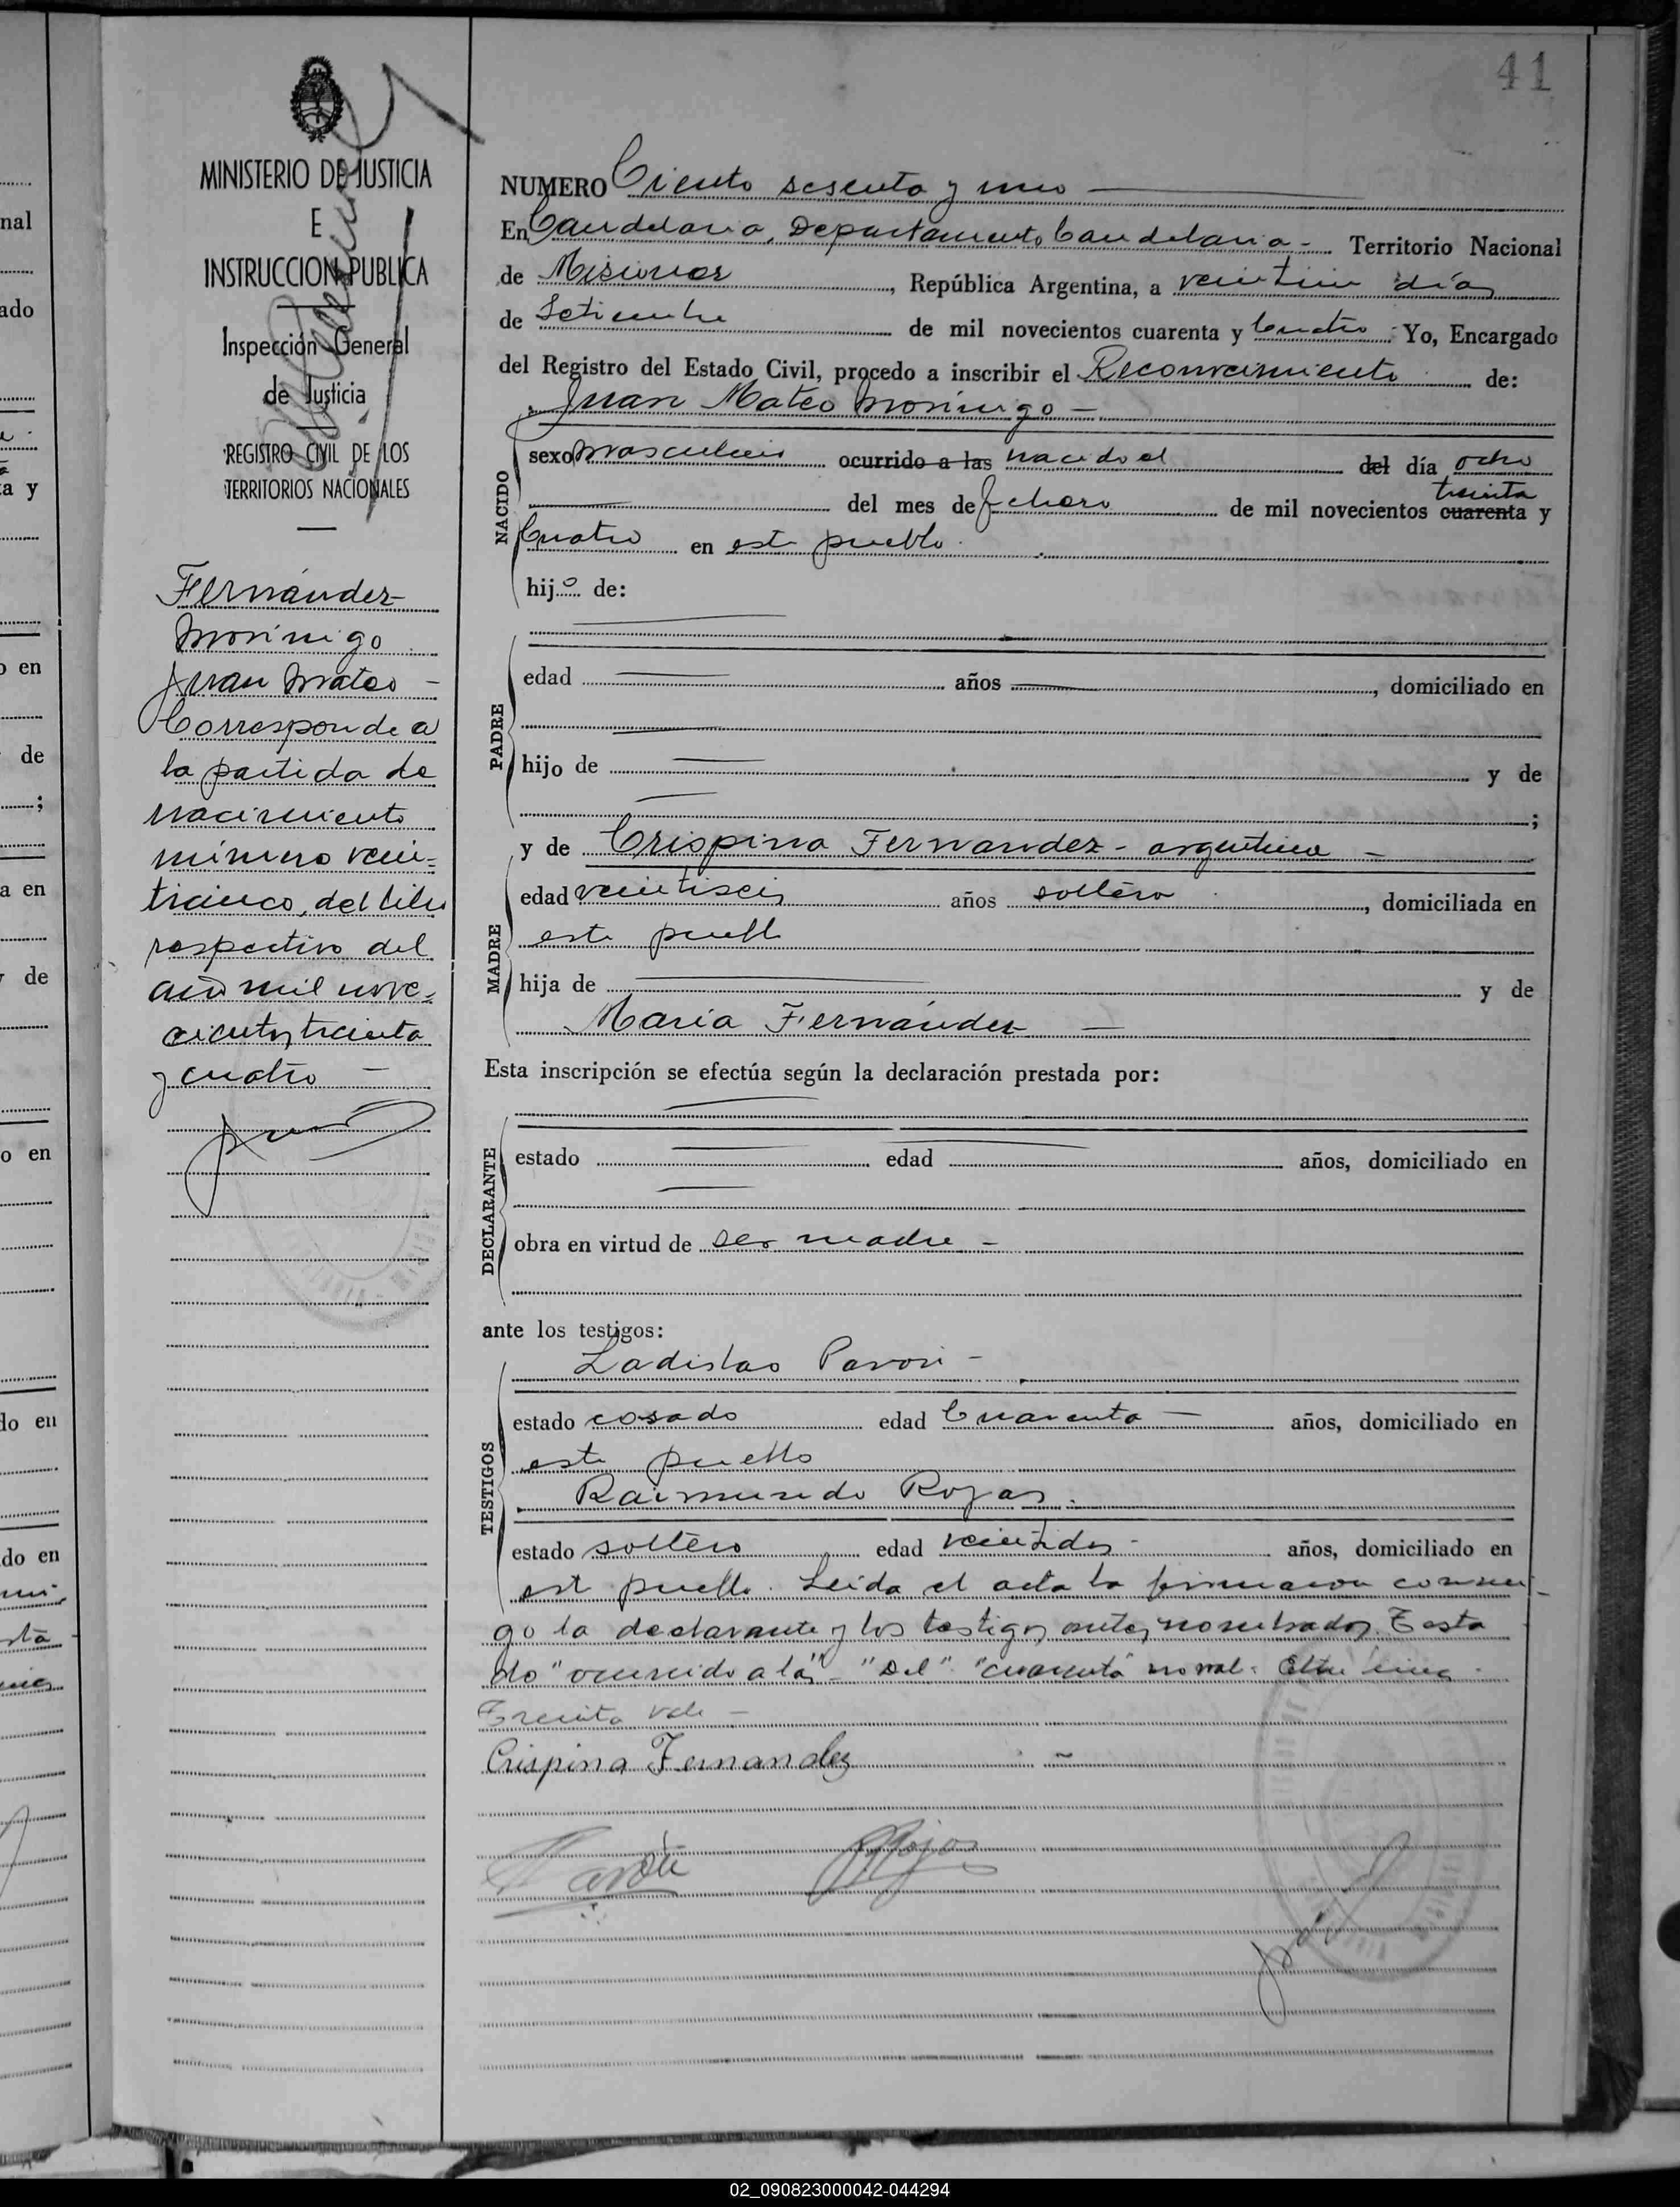 41
MINISTERIO DE JUSTICIA
E
INSTRUCCION PUBLICA
Inspección General
de Justicia
REGISTRO CIVIL DE LOS
TERRITORIOS NACIONALES
Fernández
Morinigo
Juan Mateo -
Corresponde a
la partida de
nacimiento
número vein=
ticinco, del libro
respectivo del
año mil nove=
cientos treinta
y cuatro -
NUMERO Ciento sesenta y uno
En Candelaria, Departamento Candelaria - Territorio Nacional
de Misiones, República Argentina, a veintiun días
de Setiembre de mil novecientos cuarenta y Cuatro Yo, Encargado
del Registro del Estado Civil, procedo a inscribir el Reconocimiento de:
Juan Mateo Morinigo -
NACIDO
sexo masculino ocurrido a las nacido el del día ocho
treinta
del mes de febrero de mil novecientos cuarenta y
Cuatro en este pueblo.
hijo de:
PADRE
edad años, domiciliado en
hijo de y de
;
MADRE
y de Crispina Fernandez - argentina -
edad veintiseis años soltera, domiciliada en
este pueblo
hija de y de
María Fernández -
Esta inscripción se efectúa según la declaración prestada por:
DECLARANTE
estado edad años, domiciliado en
obra en virtud de ser madre -
ante los testigos:
TESTIGOS
Ladislao Pavon -
estado casado edad Cuarenta - años, domiciliado en
este pueblo
Raimundo Rojas.
estado soltero edad veintidos - años, domiciliado en
este pueblo. Leida el acta la firmaron conmi-
go la declarante y los testigos antes nombrados. Testa
do "ocurrido a las" - "Del" "cuarenta" no vale. Entre lineas
Treinta vale -
Crispina Fernandez
Rojas
02_090823000042-044294